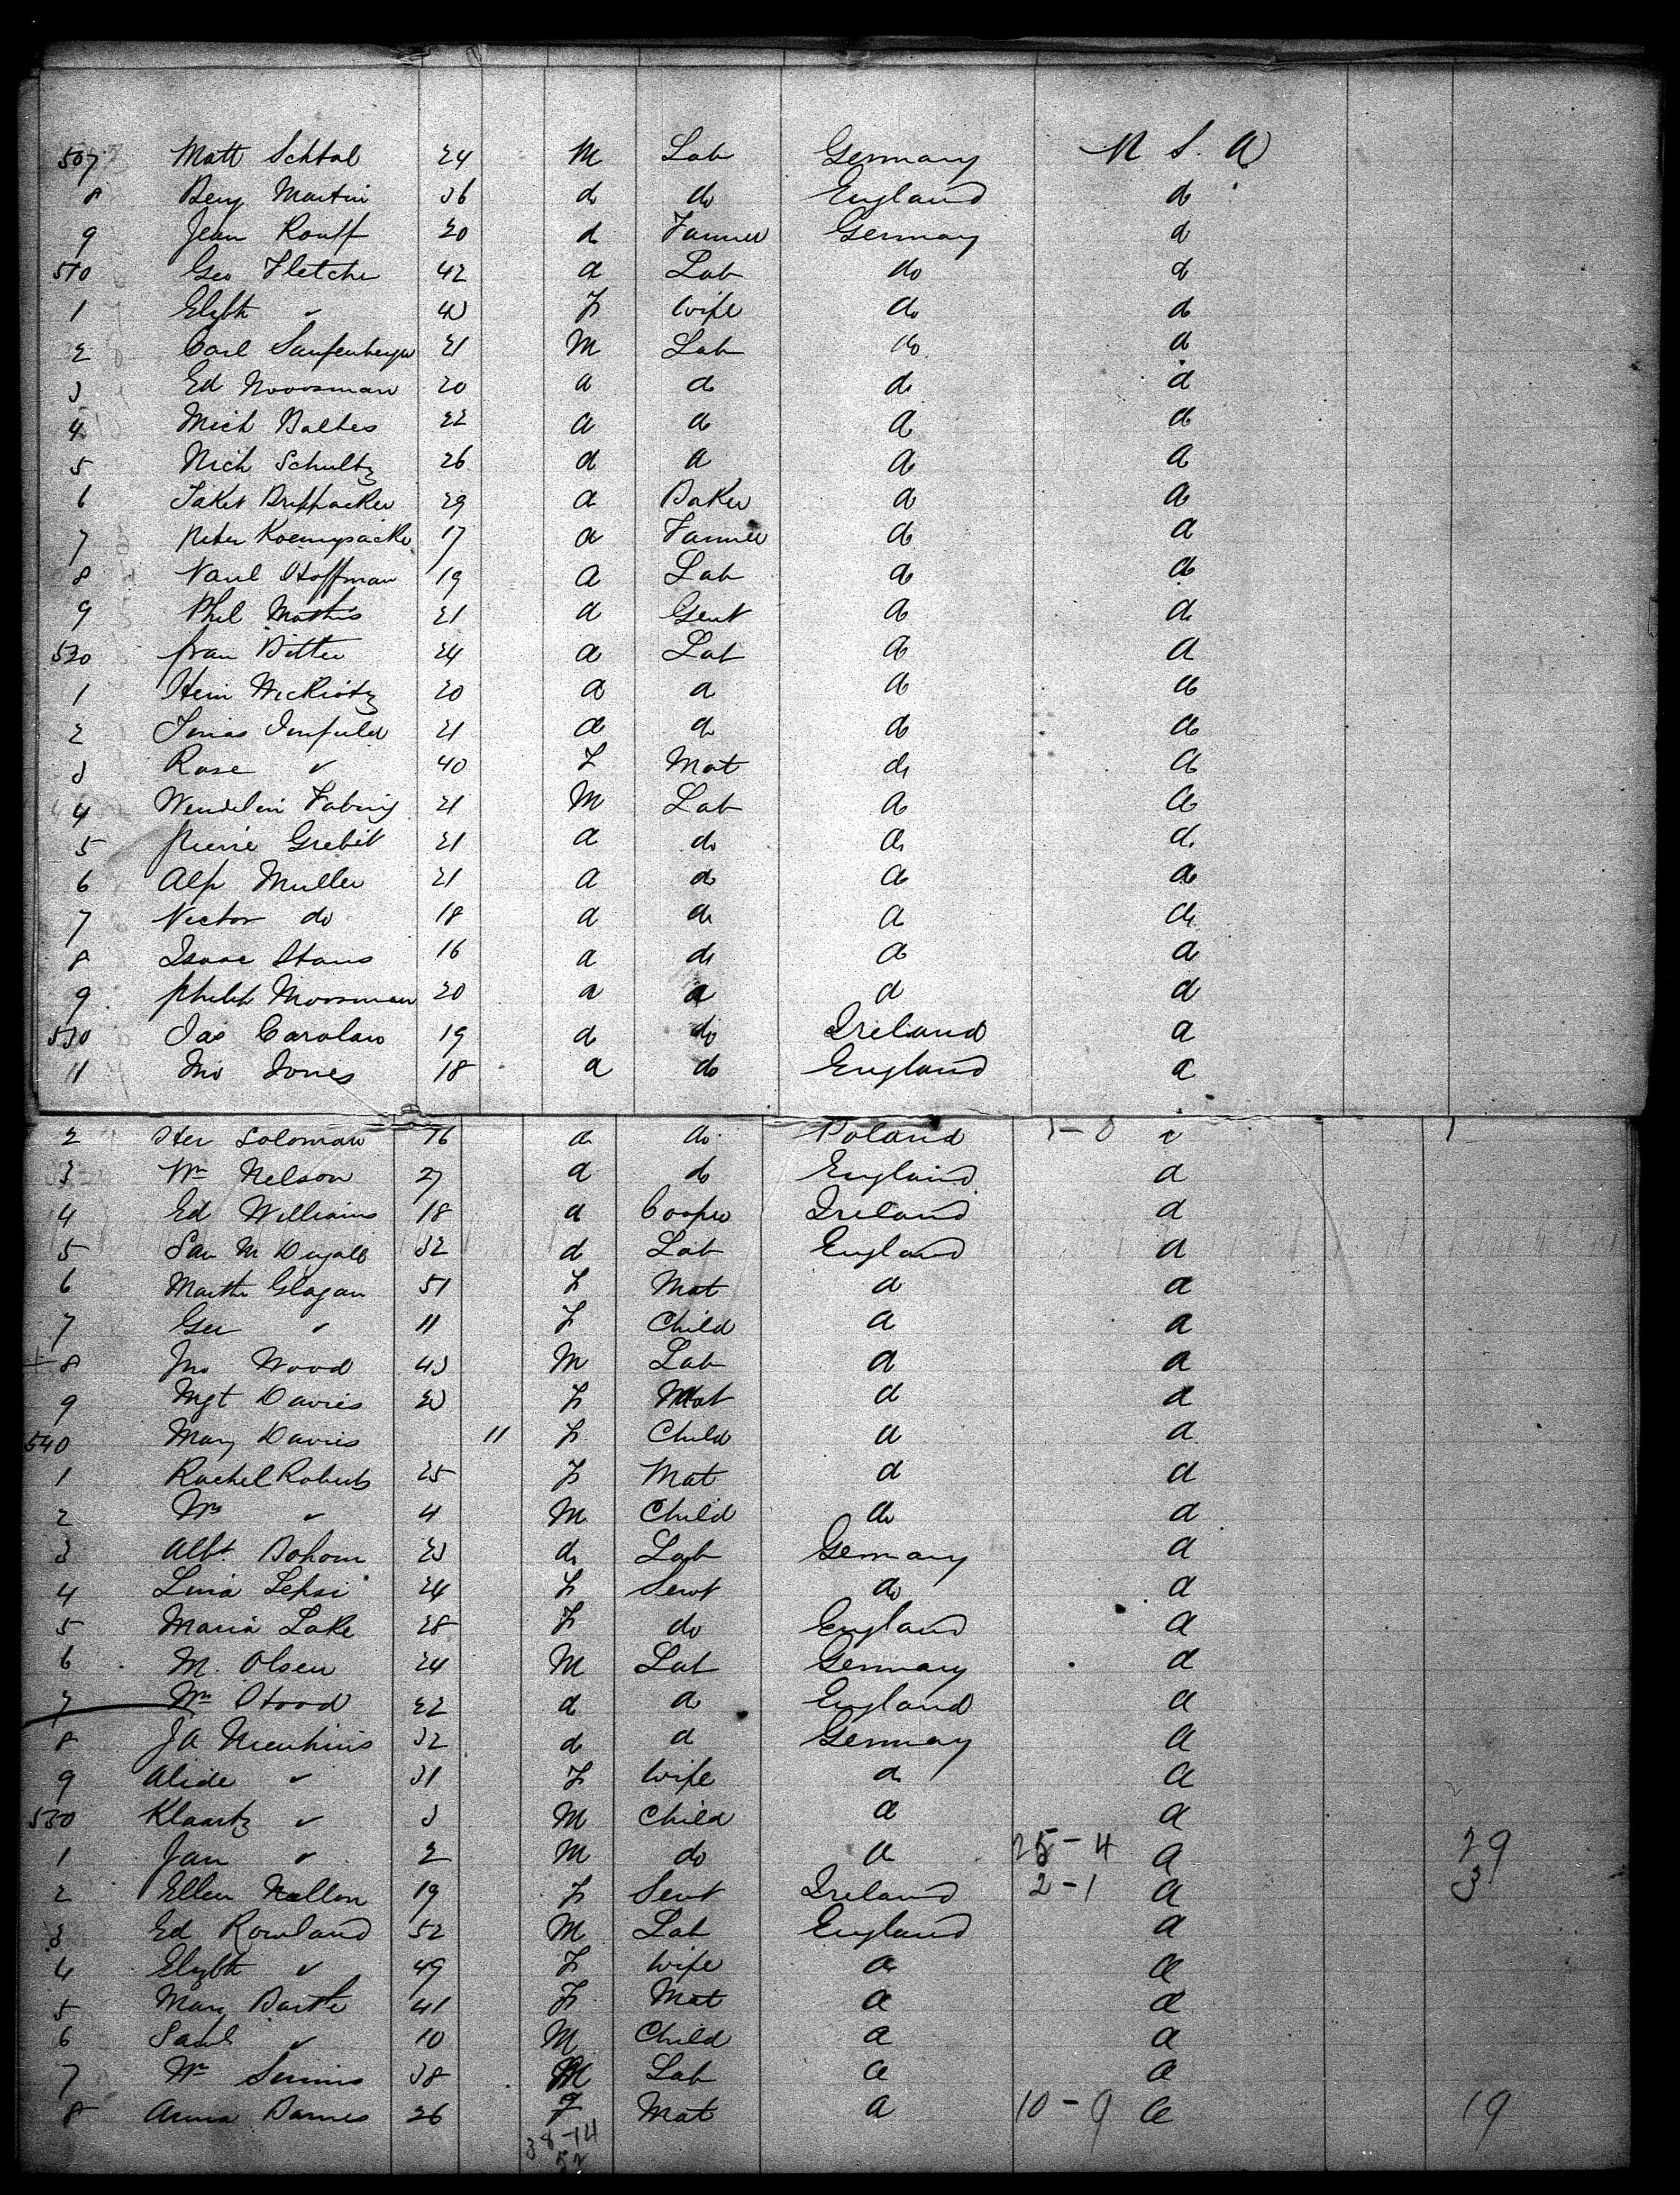 507 Matt Schtal 24 M Lab Germany U S. A
8 Benj Martin 36 do do England do
9 Jean Rouff 20 do Farmer Germany do
510 Geo Fletcher 42 do Lab do do
1 Elzbth " 40 F wife do do
2 Carl 21 M Lab do do
3 Ed Moorsman 20 do do do do
4 Mich Baltes 22 do do do do
5 Nich Schultz 26 do do do do
6 29 do Baker do do
7 Peter 17 do Farmer do do
8 Paul Hoffman 19 do Lab do do
9 Phil Mathis 21 do Gent do do
520 Fran Bitter 24 do Lab do do
1 Hein 20 do do do do
2 21 do do do do
3 Rose " 40 F Mat do do
4 Wendelin Fabing 21 M Lab do do
5 Pierre Grebit 21 do do do do
6 Alf Muller 21 do do do do
7 Victor do 18 do do do do
8 Isaac 16 do do do do
9 Philip Moorsman 20 do do do do
530 Jas Carolan 19 do do Ireland do
11 Jno Jones 18 do do England do
2 Her Soloman 16 do do Poland do
3 Wm Nelson 27 do do England do
4 Ed Williams 18 do Cooper Ireland do
5 32 do Lab England do
6 Martha Glagan 51 F Mat do do
7 Geo " 11 F Child do do
8 Jno Wood 43 M Lab do do
9 Mgt Davies 23 F Mat do do
540 Mary Davies 11 F Child do do
1 Rachel Roberts 25 F Mat do do
2 Wm " 4 M Child do do
3 Albt Bohom 23 do Lab Germany do
4 Lina 24 F Servt do do
5 Maria Lake 28 F do England do
6 M. Olsen 24 M Lab Germany do
7 Wm Stood 22 do do England do
8 J A 32 do do Germany do
9 Alide " 31 F wife do do
530 Klaartz " 3 M Child do do
1 Jan " 2 M do do 25-4 do 29
2 Ellen Mallon 19 F Servt Ireland 2-1 do 3
3 Ed Rowland 52 M Lab England do
4 Elzbth " 49 F wife do do
5 Mary 41 F Mat do do
6 Saml " 10 M Child do do
7 Wm 38 M Lab do do
8 Anna Barnes 26 F Mat do 10-9 do 19
38-14
52